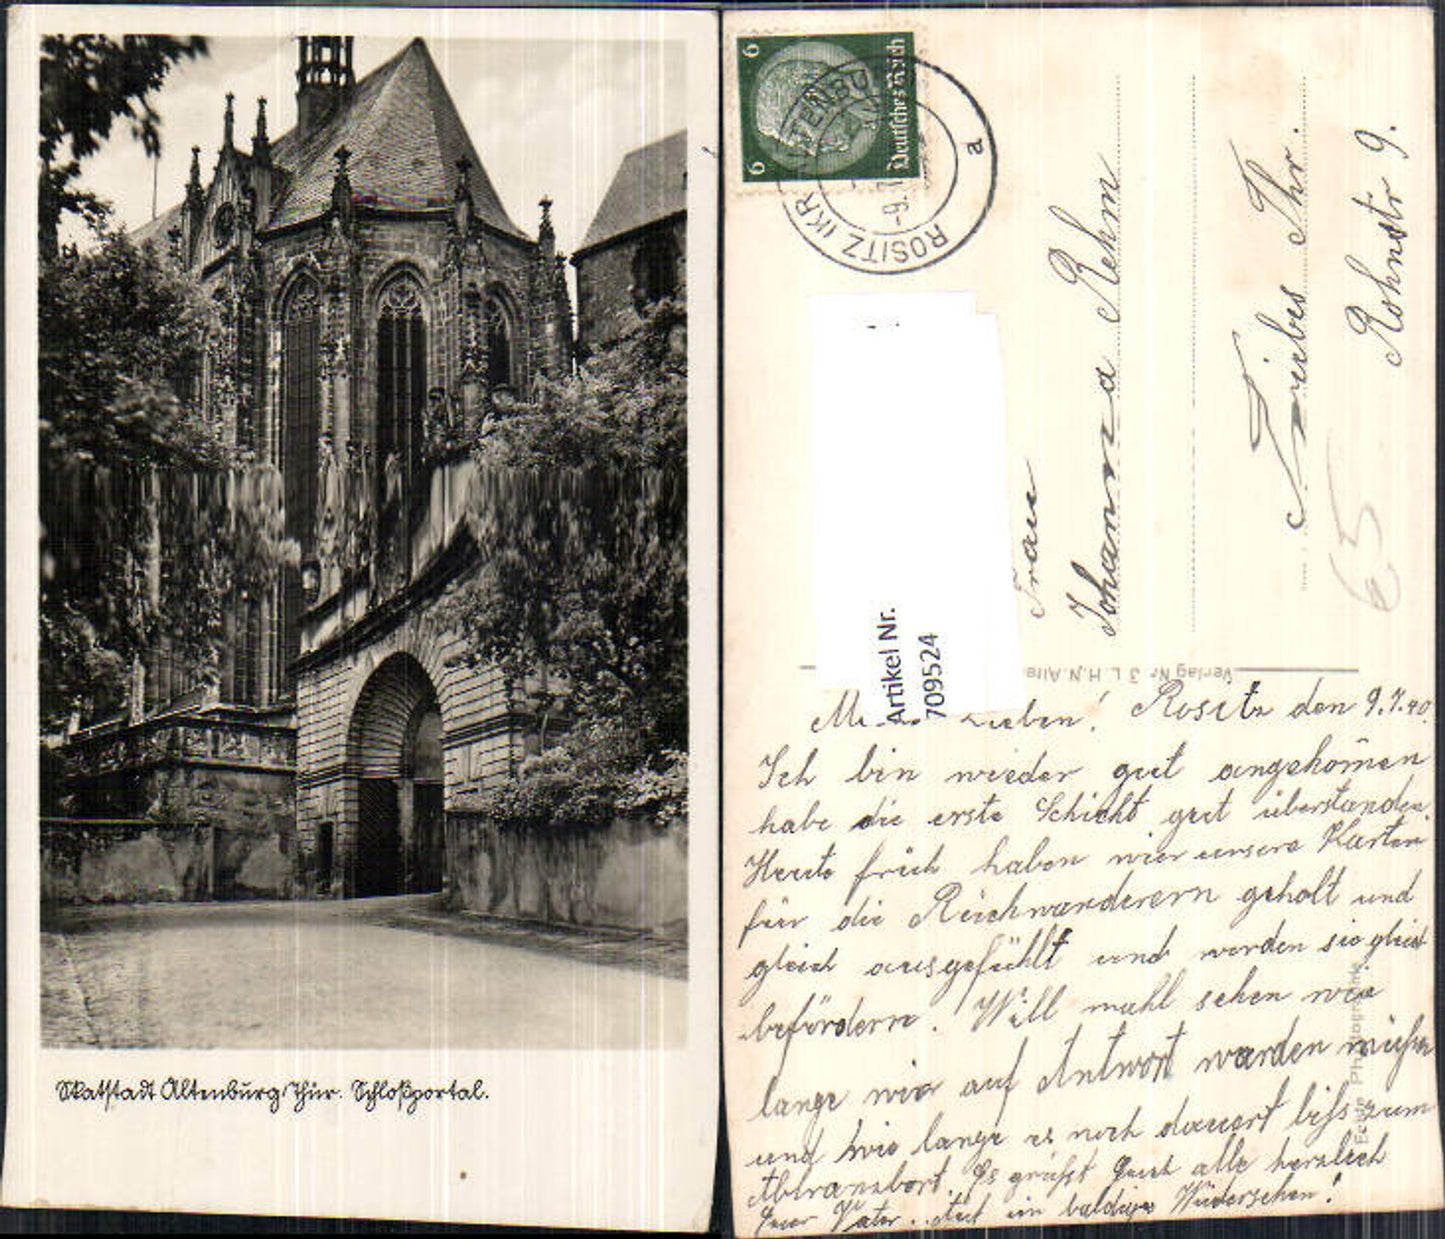 Skatstadt Altenburg Thür. Schloßportal.
6
6
Deutsches Reich
ROSITZ (KR. ALTENBURG)
a
-9.7
Artikel Nr.
709524
Frau
Johanna Rehm
Triebes Thr.
9.
65
Verlag Nr 3 L. H. N. Alte
Echte Photographie
Lieben! Rositz den 9.7.40.
Ich bin wieder gut angekomen
habe die erste Schicht gut überstanden.
Heute früh haben wier unsere Karten
für die Reichwanderern geholt und
gleich ausgefühlt und werden sie gleich
befördern. Will mahl sehen wie
lange wier auf Antwort warden müssen
und wie lange es noch dauert biss zum
Abtranzbort. Es grüßt Euch alle herzlich
Euer Vater. Auf ein baldiges Wiedersehen!